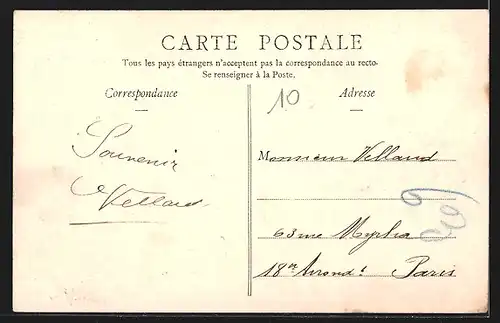 CARTE POSTALE
Tous les pays étrangers n'acceptent pas la correspondance au recto-
Se renseigner à la Poste.
Correspondance
Adresse
10
Souvenir
Vellaud
Monsieur Vellaud
63 rue Myrha
18me Arrondt Paris